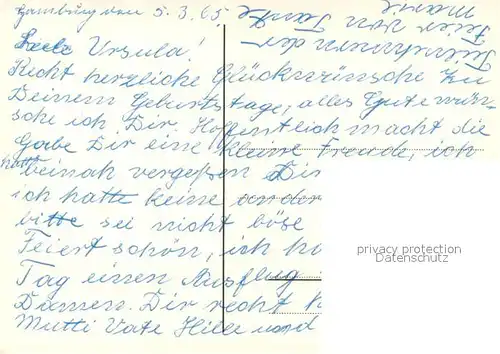 Hamburg den 5.3.65.
Liebe Ursula!
Recht herzliche Glückwünsche zu
Deinem Geburtstage, alles Gute wün-
sche ich Dir. Hoffentlich macht die
Gabe Dir eine kleine Freude, ich
hatte beinah vergeßen Dir
ich hatte keine ander
bitte sei nicht böse
Feiert schön, ich h
Tag einen Ausflug
Damen. Dir recht
Mutti Vate und
von Tante
privacy protection
Datenschutz